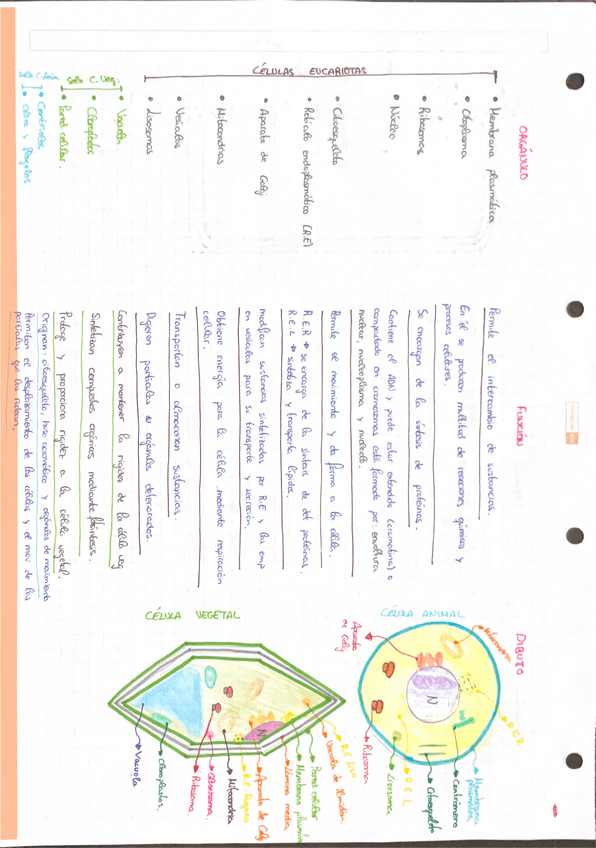 ORGÁNULO
FUNCIÓN
DIBUJO
CÉLULAS EUCARIOTAS
• Membrana plasmática
Permite el intercambio de sustancias.
• Citoplasma
En él se producen multitud de reacciones químicas y
procesos celulares.
• Ribosomas
Se encargan de la síntesis de proteínas.
• Núcleo
Contiene el ADN y puede estar extendido (cromatina) o
compactado en cromosomas está formado por: envoltura
nuclear, nucleoplasma y nucleolo.
• Citoesqueleto
Permite el movimiento y da forma a la célula.
• Retículo endoplasmático (R.E)
R.E.R → se encarga de la síntesis de proteínas.
R.E.L → sintetiza y transporta lípidos.
• Aparato de Golgi
modifican sustancias sintetizadas por R.E y las emp
en vesículas para su transporte y secreción.
• Mitocondrias
Obtiene energía para la célula mediante respiración
celular.
• Vesículas
Transportan o almacenan sustancias.
• Lisosomas
Digieren partículas u orgánulos deteriorados.
Solo C. Veg.
• Vacuola
Contribuyen a mantener la rigidez de la célula veg
• Cloroplastos
Sintetizan compuestos orgánicos mediante fotosíntesis.
• Pared celular.
Protege y proporciona rigidez a la célula vegetal.
Solo C. Anim
• Centriolos
Originan: citoesqueleto, huso acromático y orgánulos de movimiento
• Cilios y flagelos
Permiten el desplazamiento de las células y el mov de las
partículas que las rodean.
CÉLULA ANIMAL
Mitocondria
R.E.R
Membrana
plasmática
Centriolo
Citoesqueleto
R.E.L
Lisosoma
Ribosoma
Aparato
de Golgi
N
CÉLULA VEGETAL
R.E. Liso
Vacuola de almidón.
Pared celular
Membrana plasmá
Lámina media
Aparato de Golg
R.E Rugoso
Mitocondria
Ribosoma
Cloroplastos.
Vacuola
N